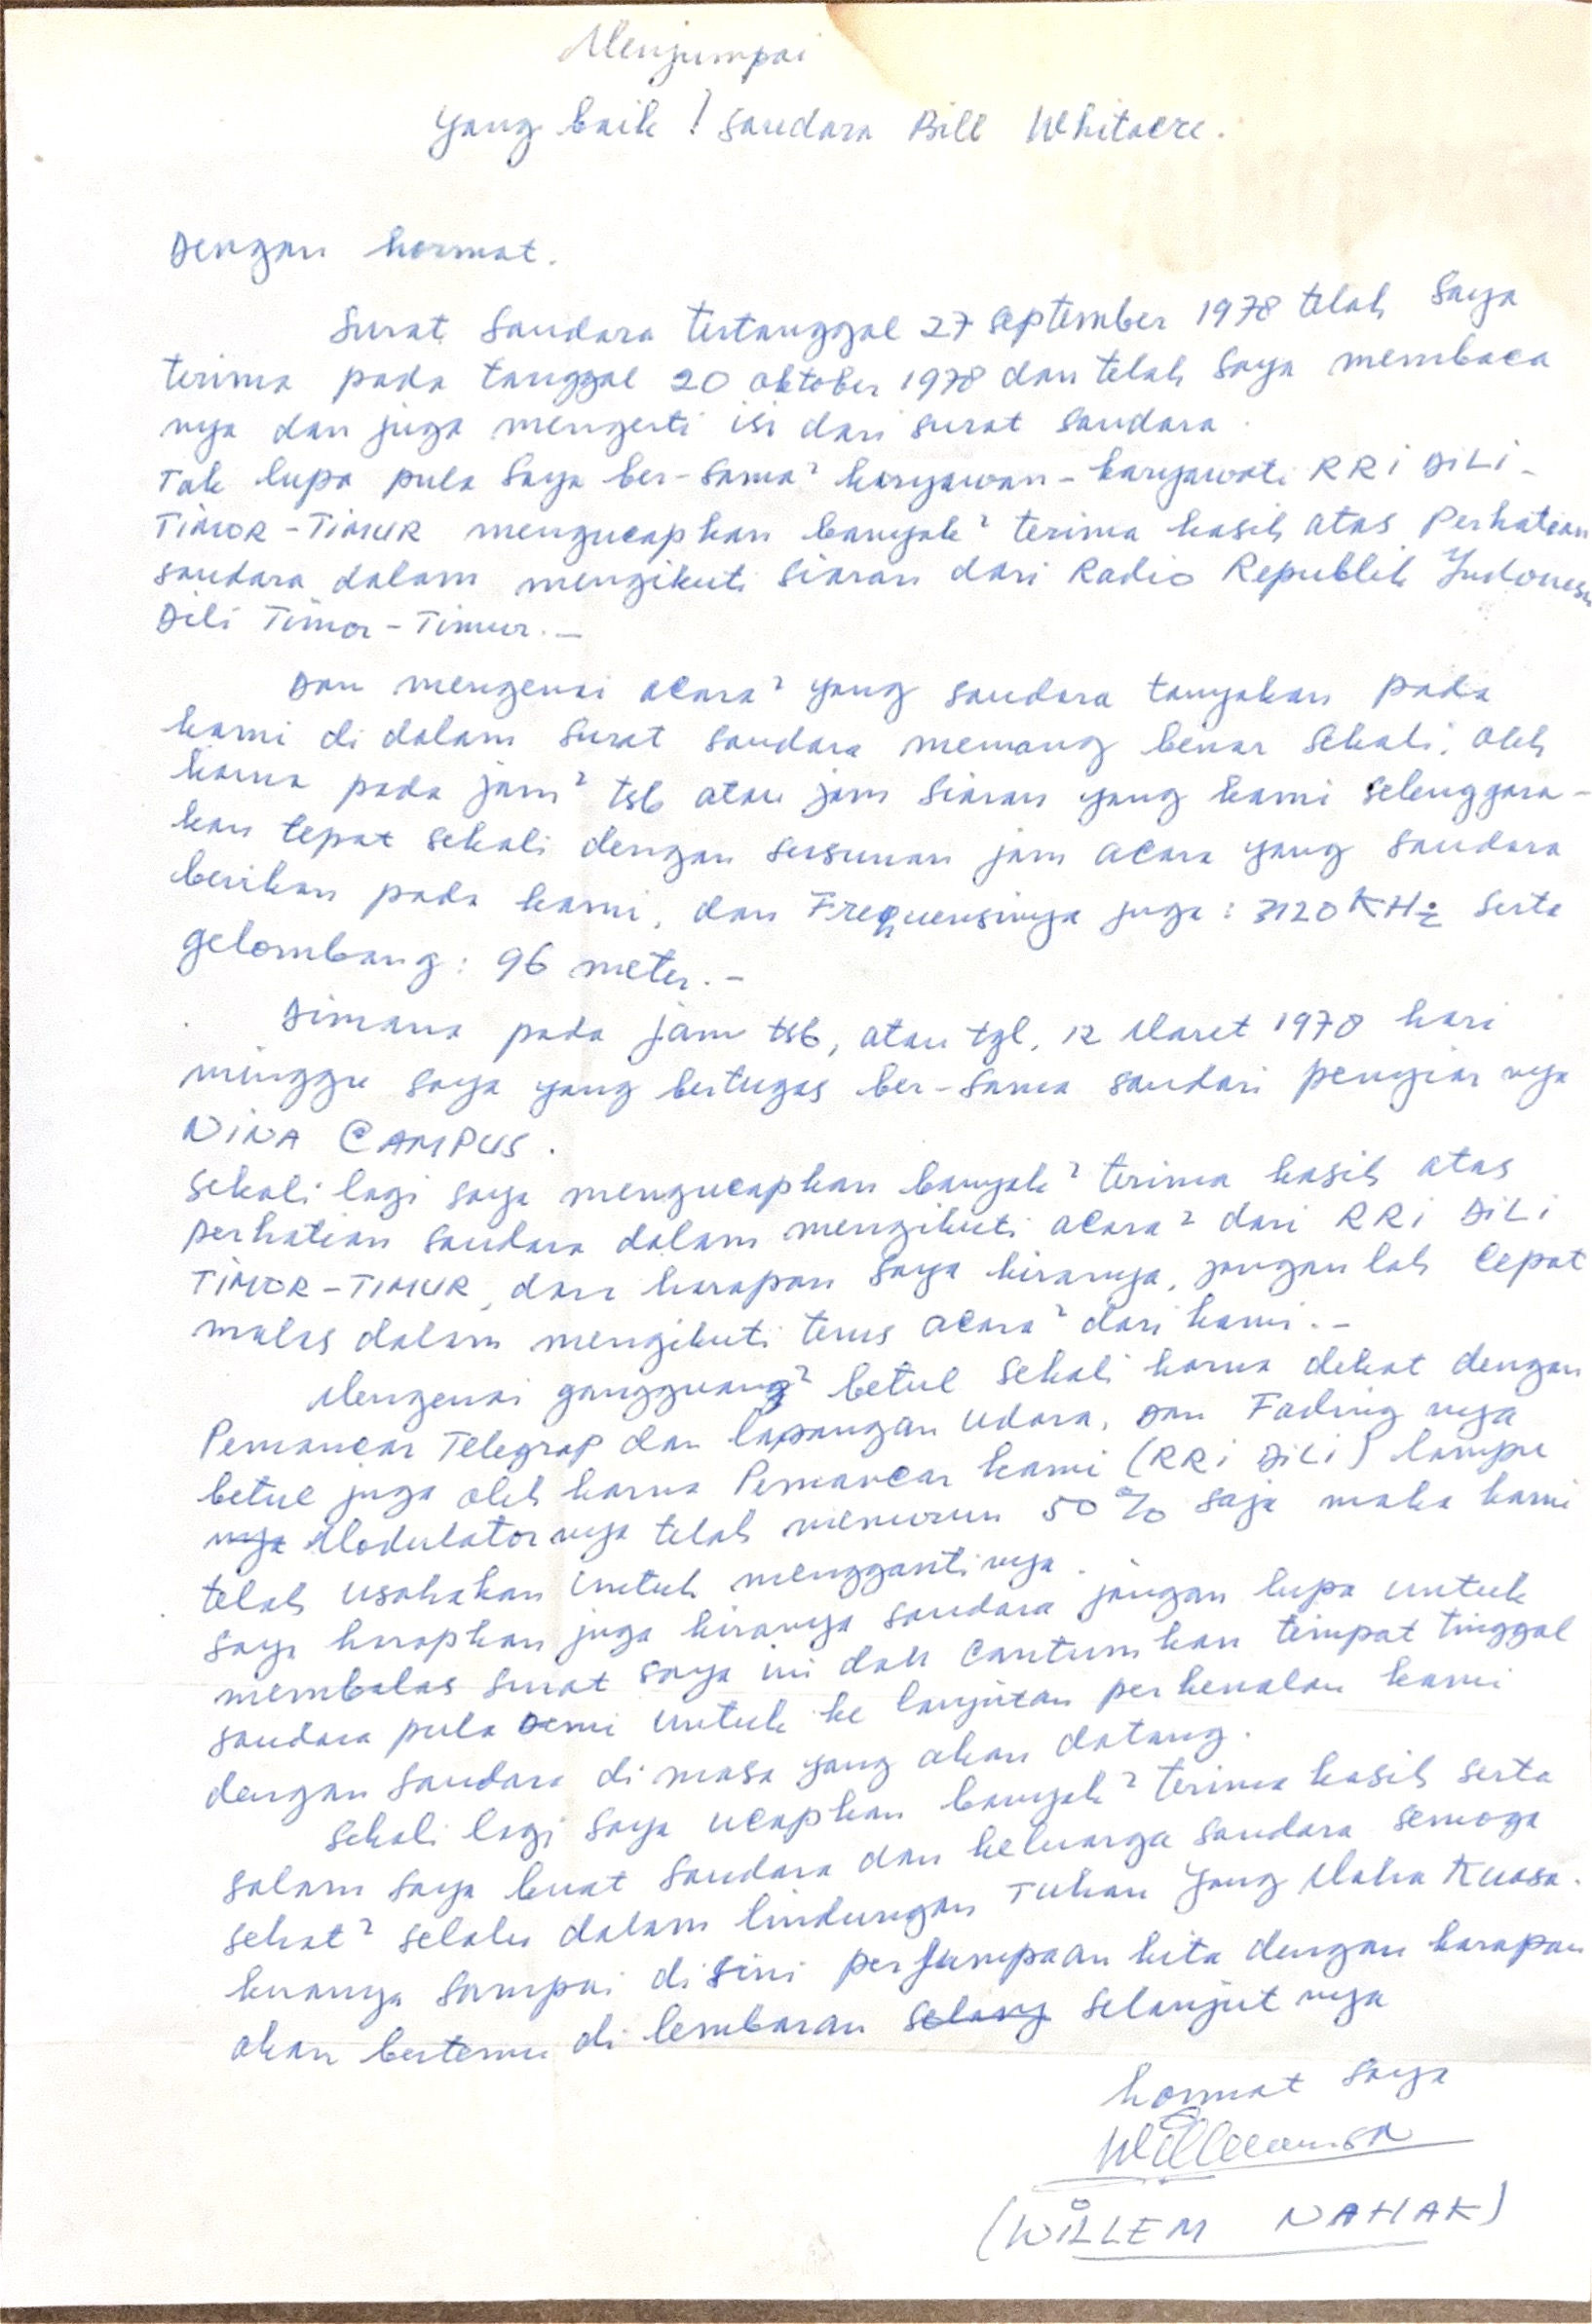 Menjumpai
Yang baik ! saudara Bill Whitacre.
Dengan hormat.
Surat saudara tertanggal 27 september 1978 telah saya
terima pada tanggal 20 oktober 1978 dan telah saya membaca
nya dan juga mengerti isi dari surat saudara.
Tak lupa pula saya ber-sama² karyawan-karyawati RRI DILI-
TIMOR-TIMUR mengucapkan banyak² terima kasih atas Perhatian
saudara dalam mengikuti siaran dari Radio Republik Indonesia
Dili Timor-Timur.-
Dan mengenai acara² yang saudara tanyakan pada
kami di dalam surat saudara memang benar sekali, oleh
karna pada jam² tsb atau jam siaran yang kami selenggara-
kan tepat sekali dengan susunan jam acara yang saudara
berikan pada kami, dan Frequensinya juga : 3120 KHz serta
gelombang : 96 meter.-
Dimana pada jam tsb, atau tgl. 12 Maret 1978 hari
minggu saya yang bertugas ber-sama saudari penyiar nya
NINA CAMPUS.
Sekali lagi saya mengucapkan banyak² terima kasih atas
perhatian saudara dalam mengikuti acara² dari RRI DILI
TIMOR-TIMUR, dan harapan saya kiranya, jangan lah cepat
malas dalam mengikuti terus acara² dari kami.-
Mengenai gangguang² betul sekali karna dekat dengan
Pemancar Telegrap dan lapangan udara, Dan Fading nya
betul juga oleh karna Pemancar kami (RRI DILI) lampu
nya Modulatornya telah menurun 50% saja maka kami
telah usahakan untuk menggantinya.
Saya harapkan juga kiranya saudara jangan lupa untuk
membalas surat saya ini dan cantumkan tempat tinggal
saudara pula Demi untuk ke lanjutan perkenalan kami
dengan saudara di masa yang akan datang.
Sekali lagi saya ucapkan banyak² terima kasih serta
salam saya buat saudara dan keluarga saudara semoga
sehat² selalu dalam lindungan Tuhan Yang Maha Kuasa.
kiranya sampai disini perjumpaan kita dengan harapan
akan bertemu di lembaran selang selanjut nya
hormat saya
(WILLEM NAHAK)